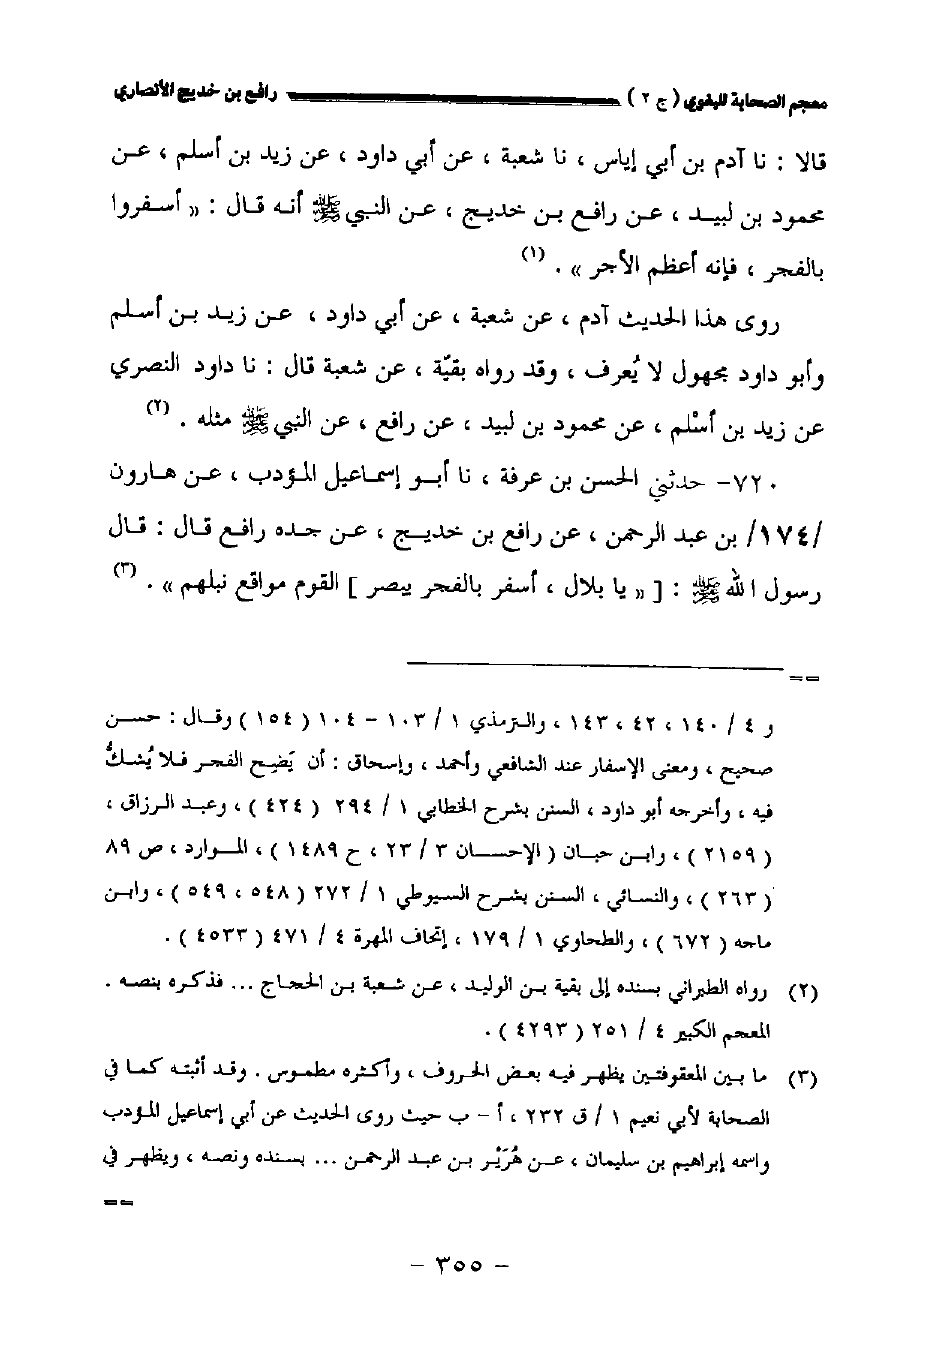 معجم الصحابة للبغوي (ج ٢) رافع بن خديج الأنصاري
قالا : نا آدم بن أبي إياس ، نا شعبة ، عن أبي داود ، عن زيد بن أسلم ، عن
محمود بن لبيد ، عن رافع بن خديج ، عن النبي ﷺ أنه قال : « أسفروا
بالفجر ، فإنه أعظم الأجر » . (١)
روى هذا الحديث آدم ، عن شعبة ، عن أبي داود ، عن زيد بن أسلم
وأبو داود مجهول لا يُعرف ، وقد رواه بقيّة ، عن شعبة قال : نا داود النصري
عن زيد بن أسْلم ، عن محمود بن لبيد ، عن رافع ، عن النبي ﷺ مثله . (٢)
٧٢٠- حدثني الحسن بن عرفة ، نا أبو إسماعيل المؤدب ، عن هارون
/١٧٤/ بن عبد الرحمن ، عن رافع بن خديج ، عن جده رافع قال : قال
رسول الله ﷺ : [ « يا بلال ، أسفر بالفجر يبصر ] القوم مواقع نبلهم » . (٣)
==
و ٤ / ١٤٠ ، ٤٢ ، ١٤٣ ، والترمذي ١ / ١٠٣ – ١٠٤ ( ١٥٤ ) وقال : حسن
صحيح ، ومعنى الإسفار عند الشافعي وأحمد ، وإسحاق : أن يَضِح الفجر فلا يُشكُّ
فيه ، وأخرجه أبو داود ، السنن بشرح الخطابي ١ / ٢٩٤ ( ٤٢٤ ) ، وعبد الرزاق ،
( ٢١٥٩ ) ، وابن حبان ( الإحسان ٣ / ٢٣ ، ح ١٤٨٩ ) ، الموارد ، ص ٨٩
( ٢٦٣ ) ، والنسائي ، السنن بشرح السيوطي ١ / ٢٧٢ ( ٥٤٨ ، ٥٤٩ ) ، وابن
ماجه ( ٦٧٢ ) ، والطحاوي ١ / ١٧٩ ، إتحاف المهرة ٤ / ٤٧١ ( ٤٥٣٣ ) .
(٢) رواه الطبراني بسنده إلى بقية بن الوليد ، عن شعبة بن الحجاج ... فذكره بنصه .
المعجم الكبير ٤ / ٢٥١ ( ٤٢٩٣ ) .
(٣) ما بين المعقوفتين يظهر فيه بعض الحروف ، وأكثره مطموس . وقد أثبته كما في
الصحابة لأبي نعيم ١ / ق ٢٣٢ ، أ – ب حيث روى الحديث عن أبي إسماعيل المؤدب
واسمه إبراهيم بن سليمان ، عن هُرَيْر بن عبد الرحمن ... بسنده ونصه ، ويظهر في
==
– ٣٥٥ –